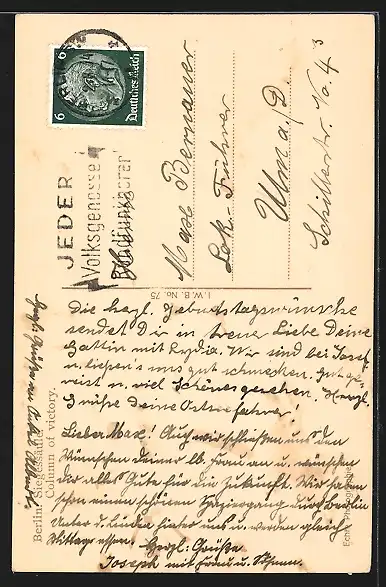 Deutsches Reich
6 6
JEDER
Volksgenosse
Rundfunkhörer
Max Bernauer
Lok-Führer
Ulm a/D.
Schillerstr. No. 4³
I. W. B. No. 75
Berlin. Siegessäule
Column of victory.
Die herzl. Geburtstagswünsche
sendet Dir in treuer Liebe Deine
Gattin mit Lydia. Wir sind bei Josef
u. liessen's uns gut schmecken. Gut ge-
reist u. viel Schönes gesehen. Herzl.
Grüße Deine
Lieber Max! Auch wir schließen uns den
Wünschen deiner lb. Frau an u. wünschen
dir alles Gute für die Zukunft. Wir haben
schon einen schönen Spaziergang durch Berlin
Unter d. Linden hinter uns u. werden gleich
Mittag essen. Herzl. Grüße
Joseph mit Frau u.